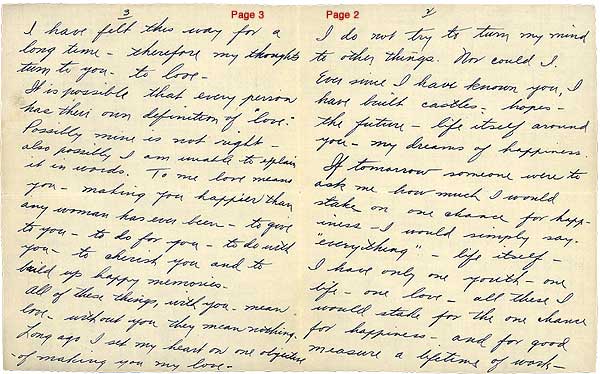 Page 2
2
I do not try to turn my mind
to other things. Nor could I.
Ever since I have known you, I
have built castles - hopes -
the future - life itself around
you - my dreams of happiness.
If tomorrow someone were to
ask me how much I would
stake on one chance for happ-
iness - I would simply say.
"everything" - life itself -
I have only one youth - one
life - one love - all these I
would stake for the one chance
for happiness. and for good
measure a lifetime of work -
Page 3
3
I have felt this way for a
long time - therefore my thoughts
turn to you - to love -
It is possible that every person
has their own definition of "love".
Possibly mine is not right -
also possibly I am unable to explain
it in words. To me love means
you - making you happier than
any woman has ever been - to give
to you - to do for you - to do with
you - to cherish you and to
build up happy memories.
All of these things, with you - mean
love - without you they mean nothing.
Long ago I set my heart on one objective
- of making you my love -